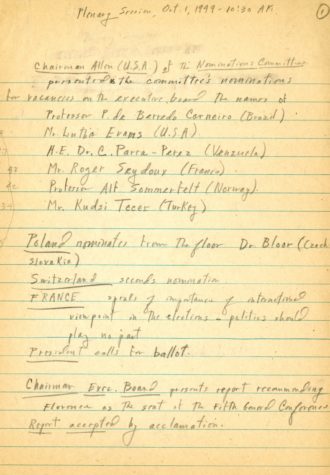 Plenary Session, Oct. 1, 1949 - 10:30 AM
1
Chairman Allen (U.S.A.) of the Nominations Committee
presented the committee's nominations
for vacancies on the executive board the names of
Professor P. de Berredo Carneiro (Brazil)
Mr. Luther Evans (U.S.A.)
H.E. Dr. C. Parra-Perez (Venezuela)
Mr. Roger Seydoux (France)
Professor Alf Sommerfelt (Norway)
Mr. Kudsi Tecer (Turkey)
Poland nominates from the floor Dr. Bloor (Czech
Slovakia)
Switzerland seconds nomination.
FRANCE speaks of importance of international
viewpoint in the elections - politics should
play no part
President calls for ballot.
Chairman Exec. Board presents report recommending
Florence as the seat of the Fifth General Conference
Report accepted by acclamation.